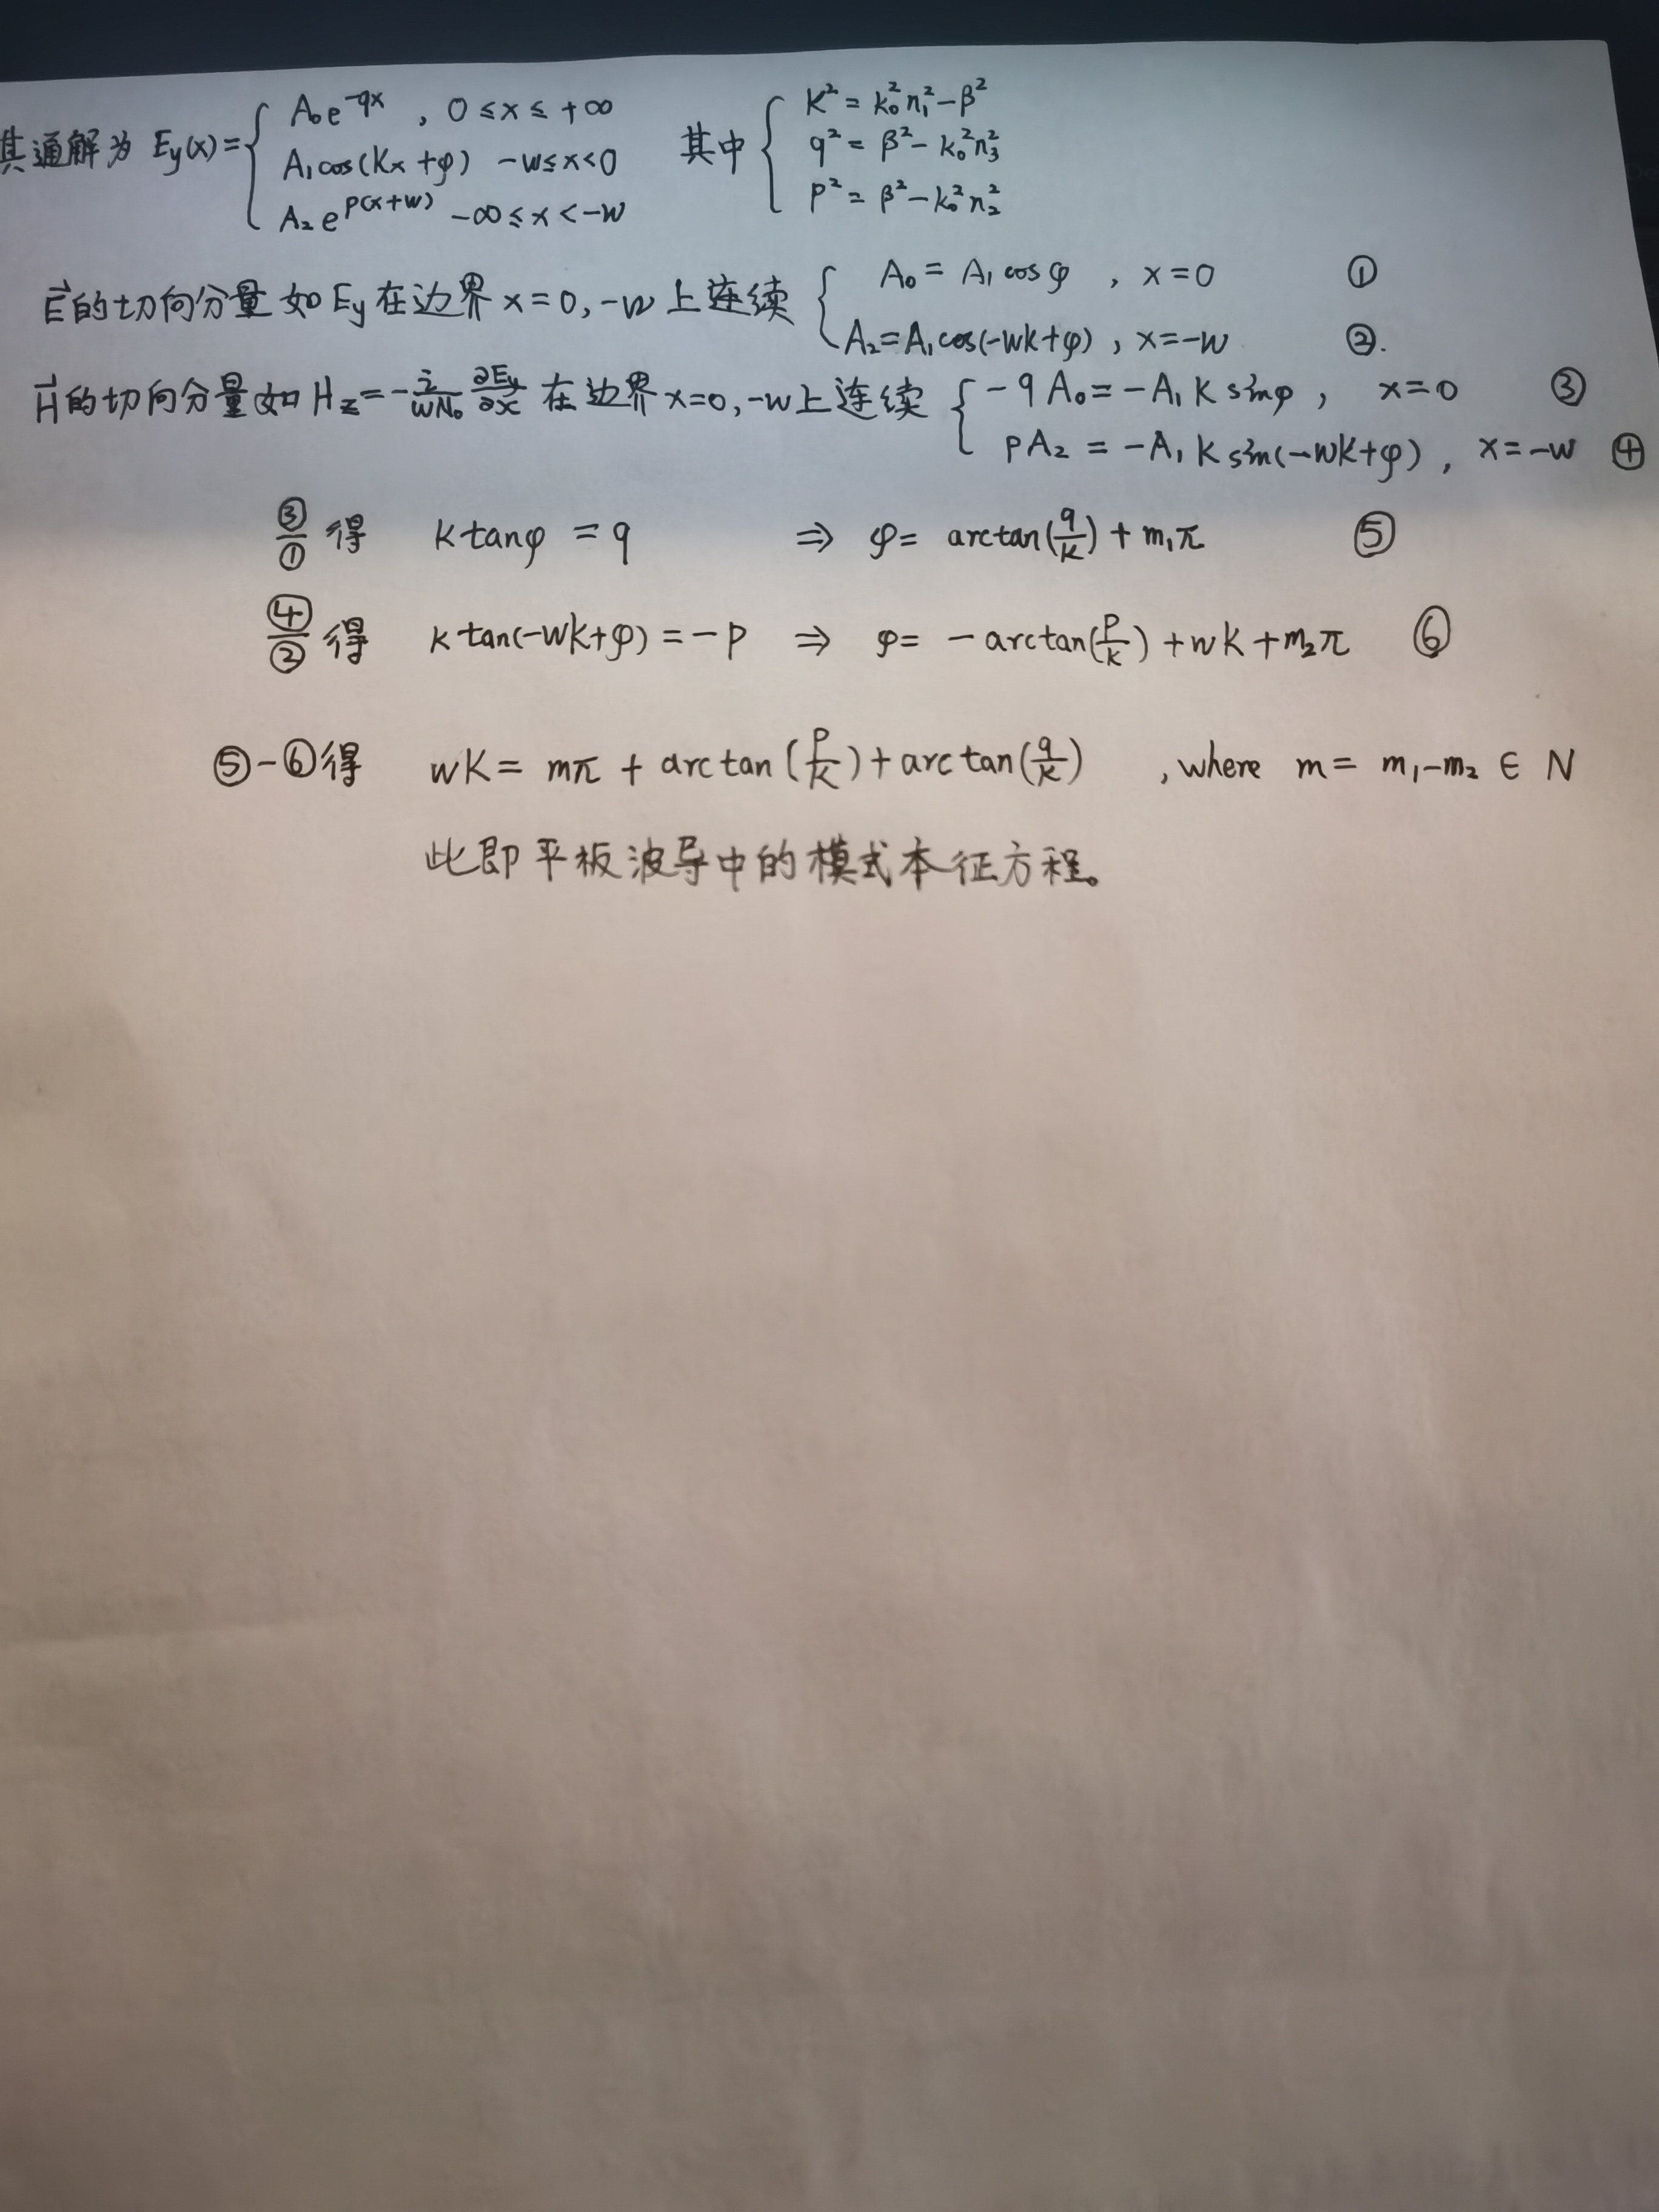 其通解为 Ey(x)={ A₀e^{-qx} , 0≤x≤+∞ 其中 { K²=k₀²n₁²-β²
A₁cos(Kx+φ) -w≤x<0 q²=β²-k₀²n₃²
A₂e^{p(x+w)} -∞≤x<-w p²=β²-k₀²n₂²
E⃗的切向分量如Ey在边界x=0,-w上连续 { A₀=A₁cosφ , x=0 ①
A₂=A₁cos(-wk+φ) , x=-w ②.
H⃗的切向分量如Hz=-i/(wN₀) ∂Ey/∂x 在边界x=0,-w上连续 { -qA₀=-A₁K sinφ , x=0 ③
pA₂=-A₁K sin(-wk+φ) , x=-w ④
③/① 得 ktanφ=q ⇒ φ=arctan(q/k)+m₁π ⑤
④/② 得 ktan(-wk+φ)=-p ⇒ φ=-arctan(p/k)+wk+m₂π ⑥
⑤-⑥得 wK=mπ+arctan(p/k)+arctan(q/k) , where m=m₁-m₂∈N
此即平板波导中的模式本征方程。